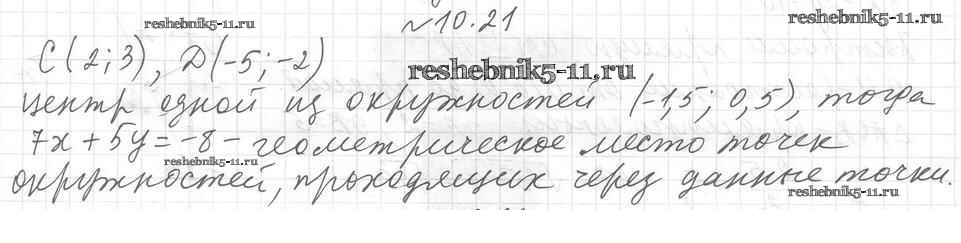 reshebnik5-11.ru
№10.21
reshebnik5-11.ru
C(2;3), D(-5;-2)
reshebnik5-11.ru
центр одной из окружностей (-1,5; 0,5), тогда
7x+5y=-8 - геометрическое место точек
reshebnik5-11.ru
окружностей, проходящих через данные точки.
reshebnik5-11.ru